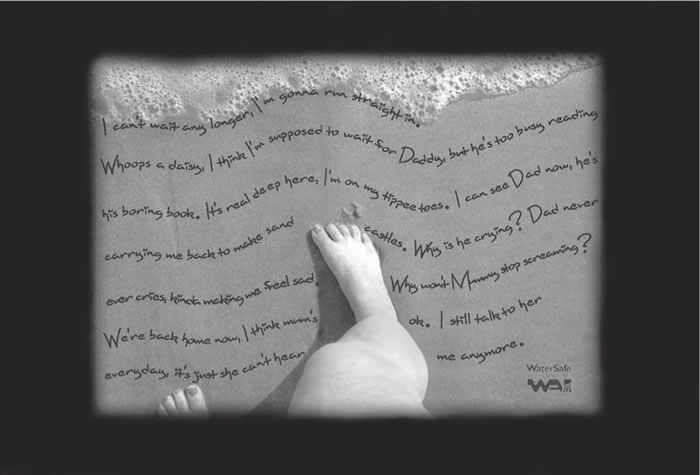 I can't wait any longer, I'm gonna run straight in.
Whoops a daisy, I think I'm supposed to wait for Daddy, but he's too busy reading
his boring book. It's real deep here, I'm on my tippee toes. I can see Dad now, he's
carrying me back to make sand castles. Why is he crying? Dad never
ever cries, kinda making me feel sad. Why won't Mummy stop screaming?
We're back home now, I think mum's ok. I still talk to her
everyday, it's just she can't hear me anymore.
WaterSafe
WAI